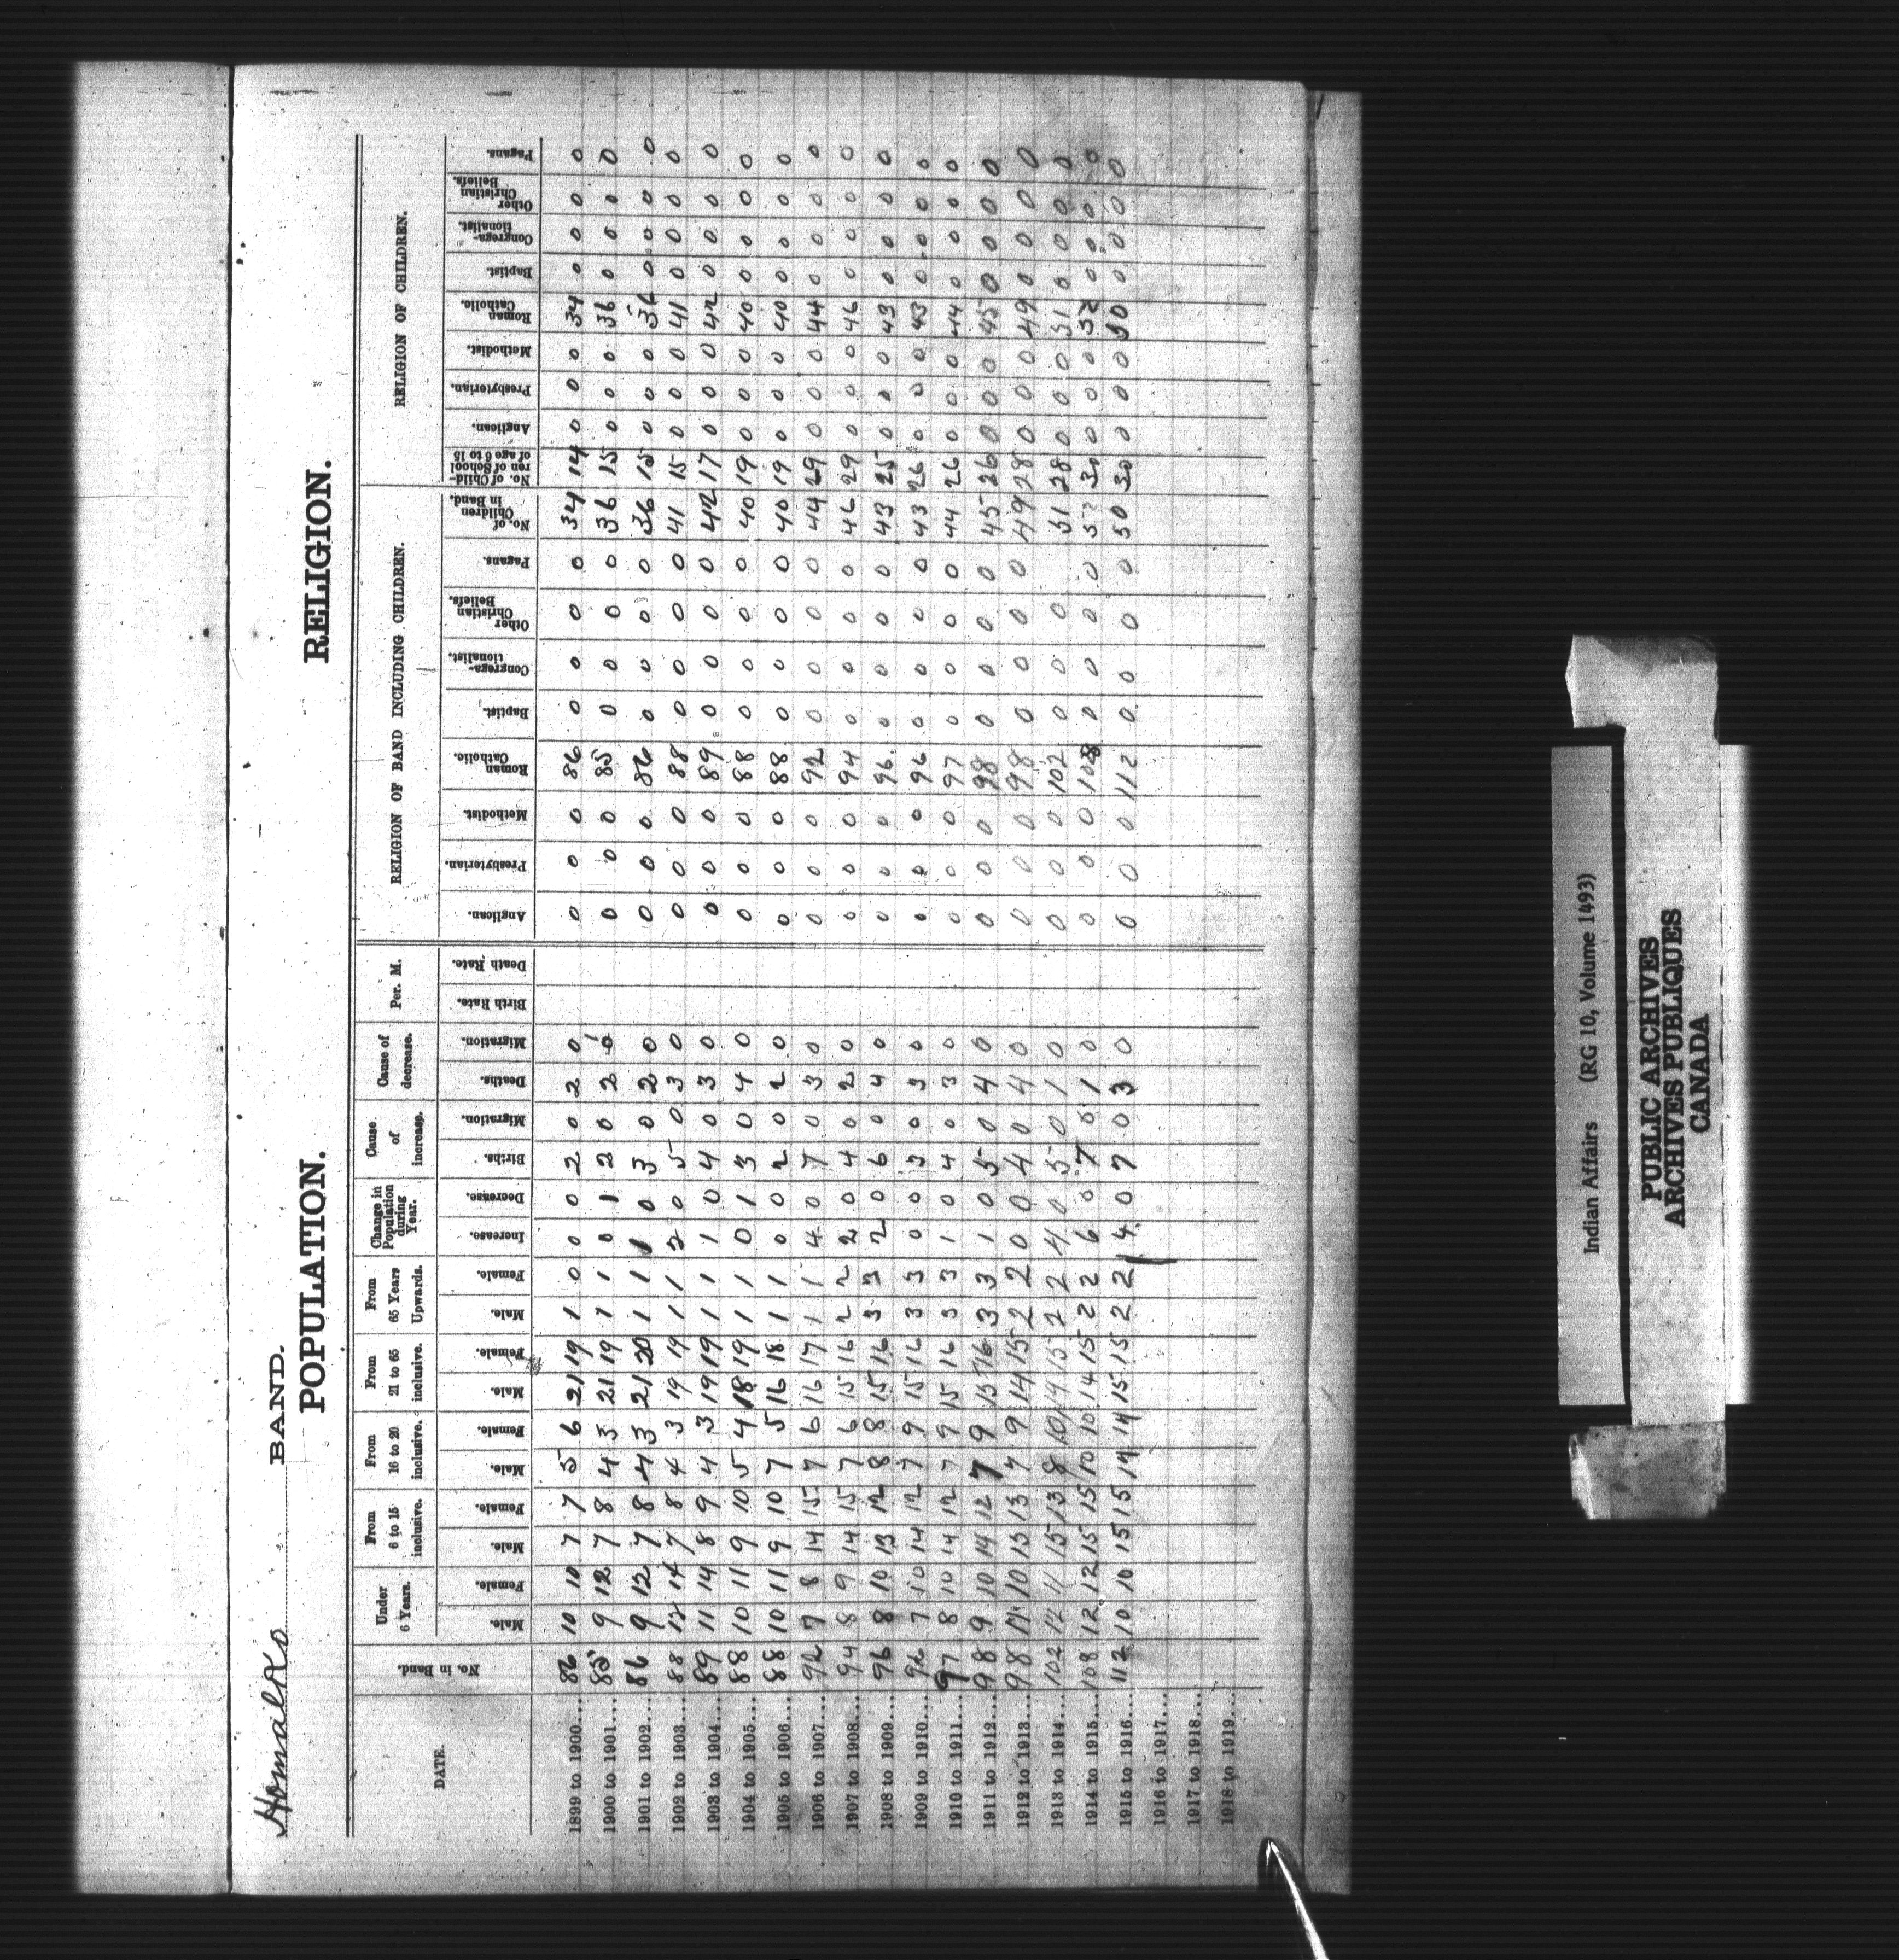 Homalko BAND.
POPULATION. RELIGION.
DATE. No. in Band. Under 6 Years. From 6 to 15 inclusive. From 16 to 20 inclusive. From 21 to 65 inclusive. From 65 Years Upwards. Change in Population during Year. Cause of increase. Cause of decrease. Per. M. RELIGION OF BAND INCLUDING CHILDREN. RELIGION OF CHILDREN.
Male. Female. Male. Female. Male. Female. Male. Female. Male. Female. Increase. Decrease. Births. Migration. Deaths. Migration. Birth Rate. Death Rate. Anglican. Presbyterian. Methodist. Roman Catholic. Baptist. Congregationalist. Other Christian Beliefs. Pagans. No. of Children in Band. No. of Children of School of age 6 to 15 Anglican. Presbyterian. Methodist. Roman Catholic. Baptist. Congregationalist. Other Christian Beliefs. Pagans.
1899 to 1900... 86 10 10 7 7 5 6 21 19 1 0 0 0 2 0 2 0 0 0 0 86 0 0 0 0 34 14 0 0 0 34 0 0 0 0
1900 to 1901... 85 9 12 7 8 4 3 21 19 1 1 0 1 2 0 2 0 0 0 85 0 0 0 0 36 15 0 0 0 36 0 0 0 0
1901 to 1902... 86 9 12 7 8 4 3 21 20 1 1 1 0 3 0 2 0 0 0 0 86 0 0 0 0 36 15 0 0 0 36 0 0 0 0
1902 to 1903... 88 12 14 7 8 4 3 19 19 1 1 2 0 5 0 3 0 0 0 0 88 0 0 0 0 41 15 0 0 0 41 0 0 0 0
1903 to 1904... 89 11 14 8 9 4 3 19 19 1 1 1 0 4 0 3 0 0 0 0 89 0 0 0 0 42 17 0 0 0 42 0 0 0 0
1904 to 1905... 88 10 11 9 10 5 4 18 19 1 1 0 1 3 0 4 0 0 0 0 88 0 0 0 0 40 19 0 0 0 40 0 0 0 0
1905 to 1906... 88 10 11 9 10 7 5 16 18 1 1 0 0 2 0 2 0 0 0 0 88 0 0 0 0 40 19 0 0 0 40 0 0 0 0
1906 to 1907... 92 7 8 14 15 7 6 16 17 1 1 4 0 7 0 3 0 0 0 0 92 0 0 0 0 44 29 0 0 0 44 0 0 0 0
1907 to 1908... 94 8 9 14 15 7 6 15 16 2 2 2 0 4 0 2 0 0 0 0 94 0 0 0 0 46 29 0 0 0 46 0 0 0 0
1908 to 1909... 96 8 10 13 12 8 8 15 16 3 3 2 0 6 0 4 0 0 0 0 96 0 0 0 0 43 25 0 0 0 43 0 0 0 0
1909 to 1910... 96 7 10 14 12 7 9 15 16 3 3 0 0 3 0 3 0 0 0 0 96 0 0 0 0 43 26 0 0 0 43 0 0 0 0
1910 to 1911... 97 8 10 14 12 7 9 15 16 3 3 1 0 4 0 3 0 0 0 0 97 0 0 0 0 44 26 0 0 0 44 0 0 0 0
1911 to 1912... 98 9 10 14 12 7 9 15 16 3 3 1 0 5 0 4 0 0 0 0 98 0 0 0 0 45 26 0 0 0 45 0 0 0 0
1912 to 1913... 98 10 13 13 7 9 14 15 2 2 0 0 4 0 4 0 0 0 0 98 0 0 0 0 49 28 0 0 0 49 0 0 0 0
1913 to 1914... 102 12 11 15 13 8 10 14 15 2 2 4 0 5 0 1 0 0 0 0 102 0 0 0 51 28 0 0 0 51 0 0 0 0
1914 to 1915... 108 12 12 15 15 10 10 14 15 2 2 6 0 7 0 1 0 0 0 0 108 0 0 0 0 52 30 0 0 0 52 0 0 0 0
1915 to 1916... 112 10 10 15 15 14 14 15 15 2 2 4 0 7 0 3 0 0 0 0 112 0 0 0 0 50 30 0 0 0 50 0 0 0 0
1916 to 1917...
1917 to 1918...
1918 to 1919...
Indian Affairs (RG 10, Volume 1493)
PUBLIC ARCHIVES
ARCHIVES PUBLIQUES
CANADA